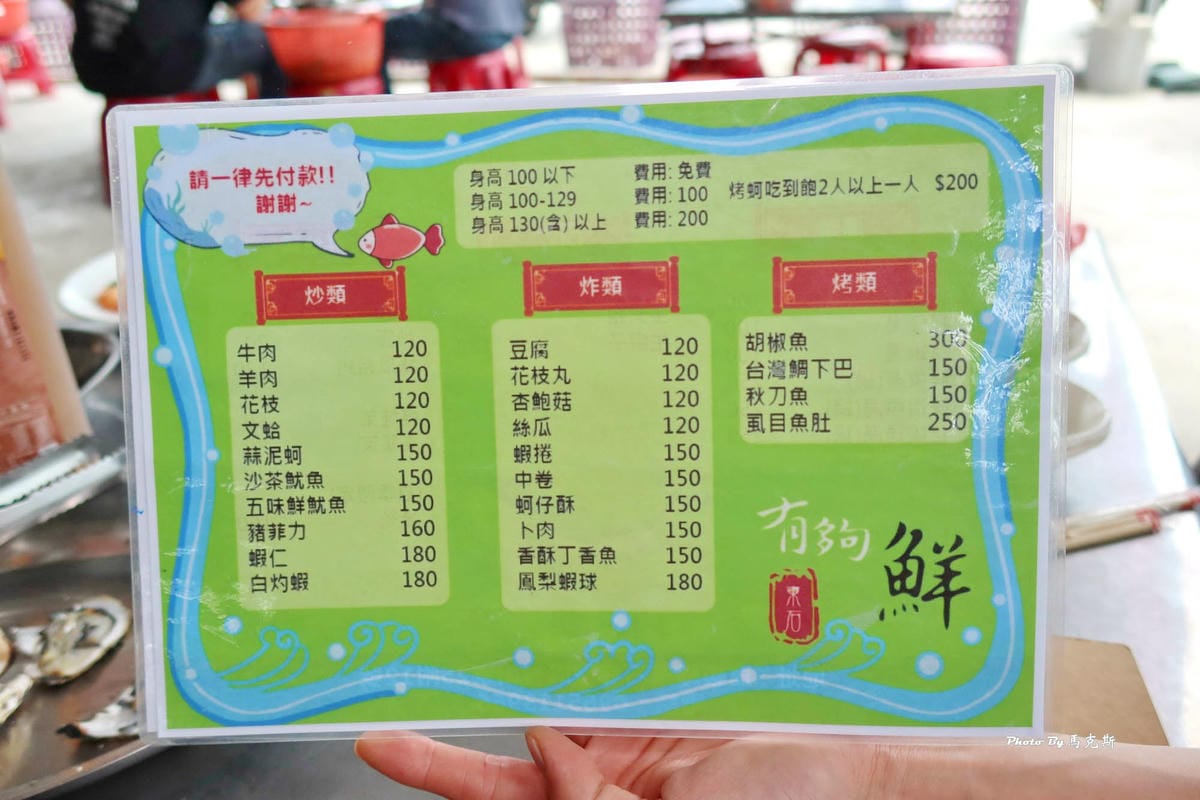 請一律先付款!!
謝謝~
身高 100 以下 費用: 免費
身高 100-129 費用: 100
身高 130(含) 以上 費用: 200
烤蚵吃到飽2人以上一人 $200
炒類
牛肉 120
羊肉 120
花枝 120
文蛤 120
蒜泥蚵 150
沙茶魷魚 150
五味鮮魷魚 150
豬菲力 160
蝦仁 180
白灼蝦 180
炸類
豆腐 120
花枝丸 120
杏鮑菇 120
絲瓜 120
蝦捲 150
中卷 150
蚵仔酥 150
卜肉 150
香酥丁香魚 150
鳳梨蝦球 180
烤類
胡椒魚 300
台灣鯛下巴 150
秋刀魚 150
虱目魚肚 250
有夠
鮮
東石
Photo By 馬克斯